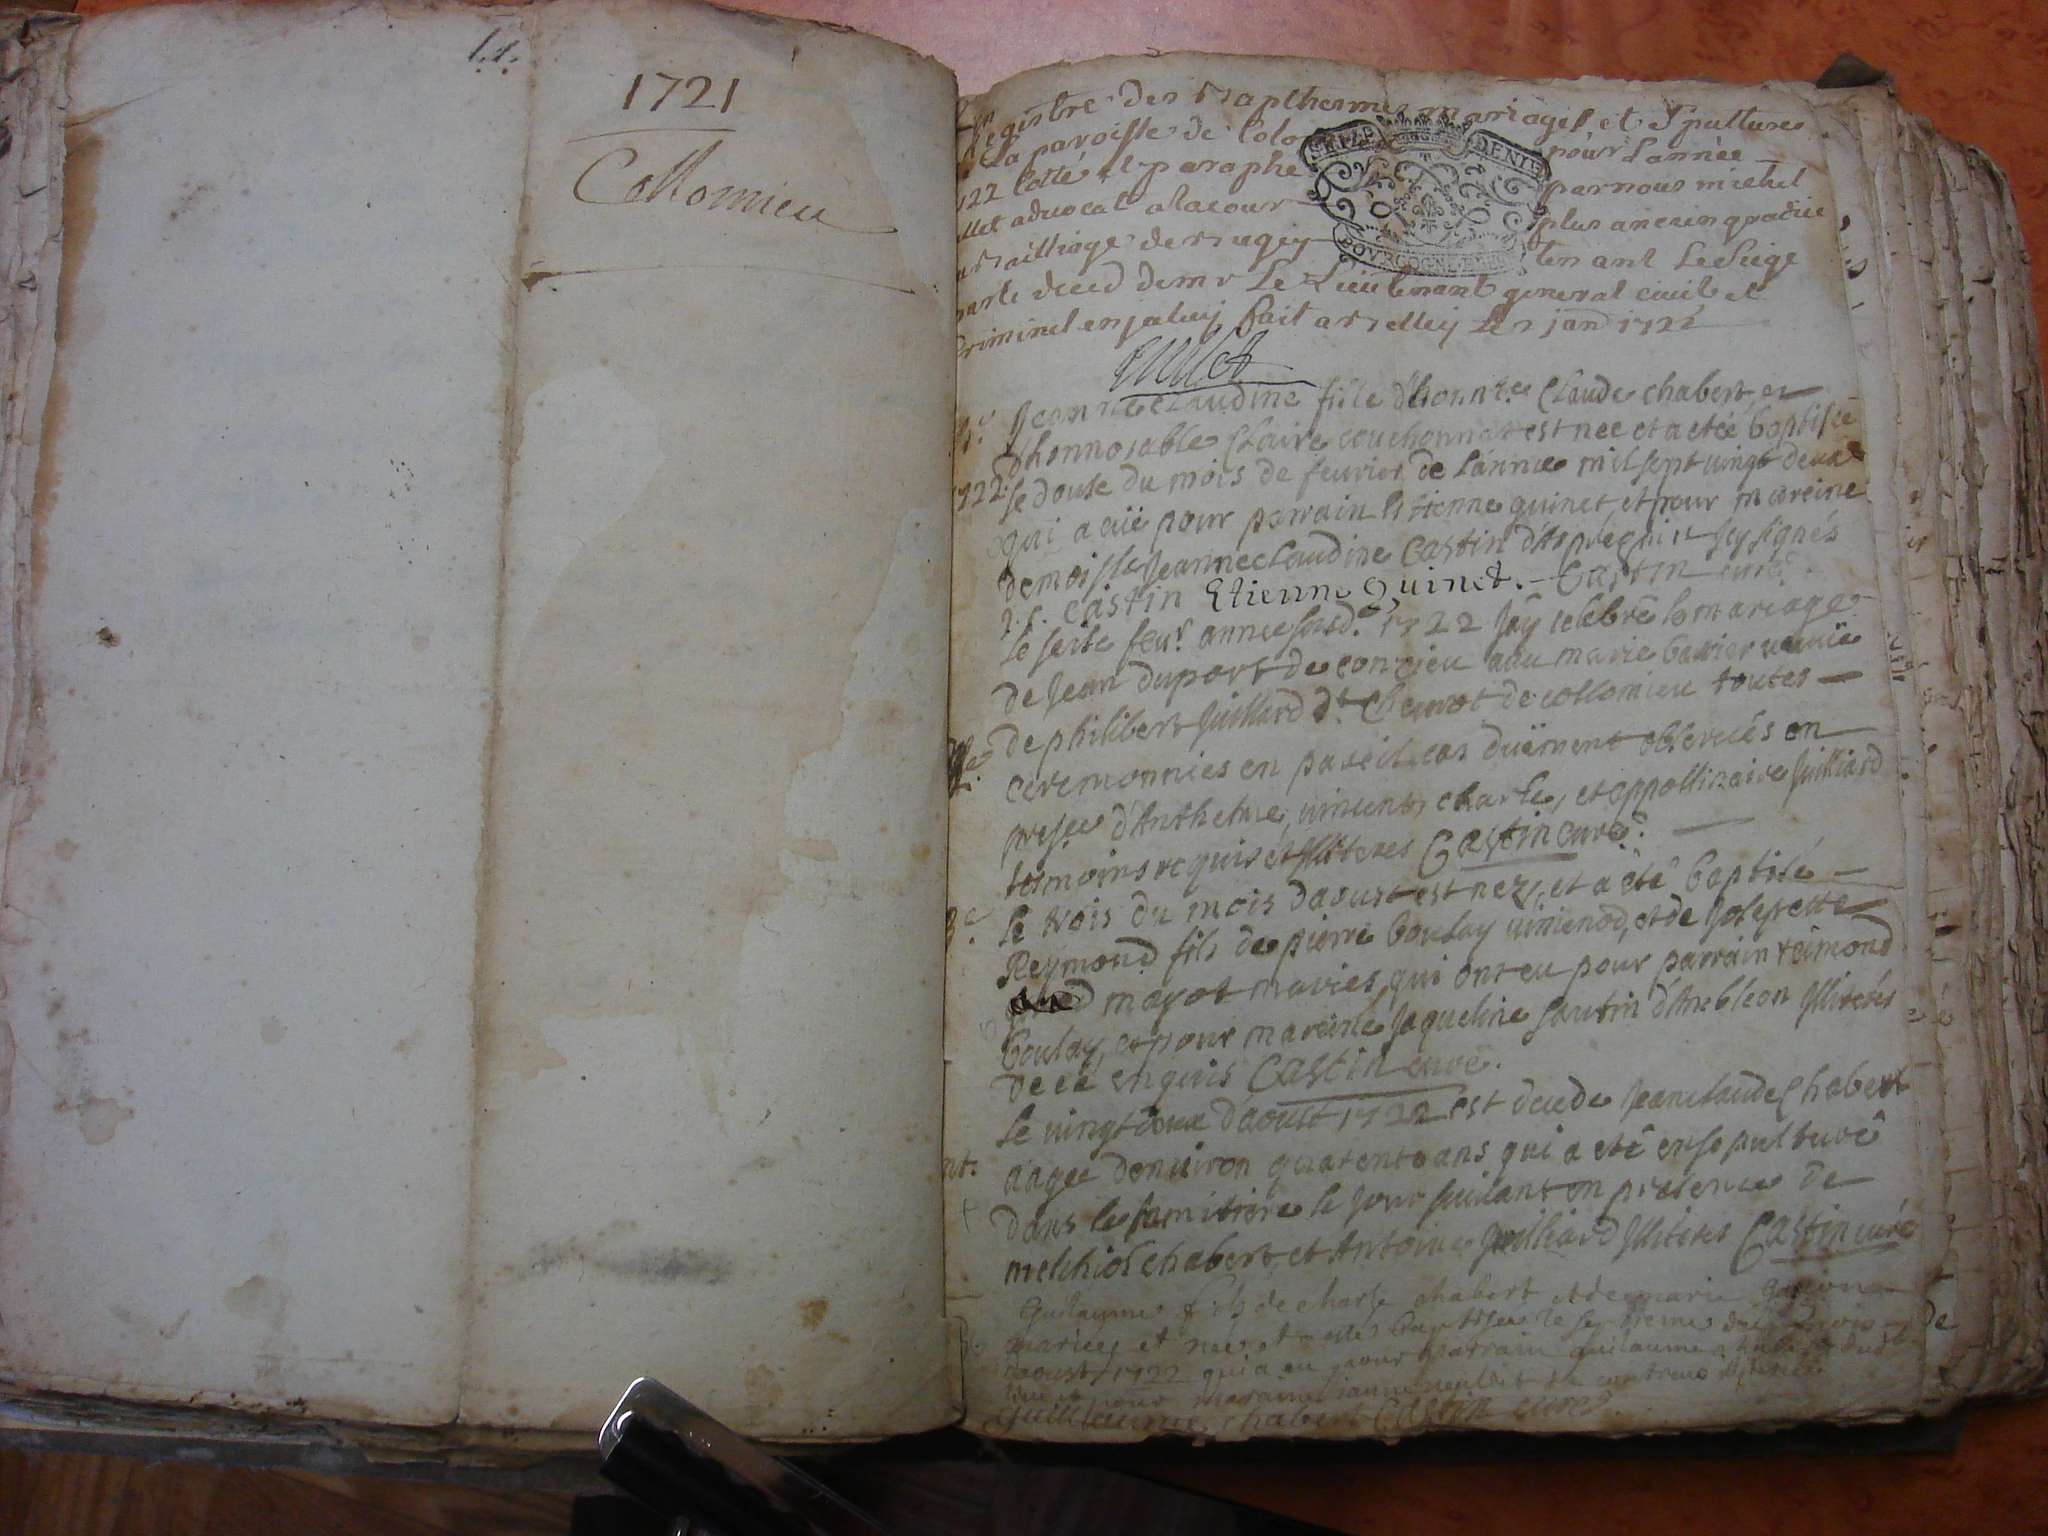 1721
Collomieu
Registre des Bapthesmes mariages et Spultures
la paroisse de Colo pour Lannée
1722 Cotté et paraphé par nous michel
advocat a la cour plus ancien gradué
au Bailliage de Bugey tenant Le Siege
deced de mr Le Lieutenant general civil et
Criminel en jceluy fait a Belley Le janr 1722
1er Jeanne claudine fille d'honnble Claude chabert, et
d'honnorable Claire couchonnat est née et a etée baptisée
1722. le douse du mois de feuvrier de L'année mil sept vingt deux
qui a aüe pour parrain Estienne quinet, et pour mareine
demoisle Jeanne claudine Castin d'Ispregnin sy signés
J. C. Castin Etienne Quinet. Castin curé.
le seise feur. année susd.e 1722 J'ay celebré le mariage
de Jean duport de conzieu avec marie bavier veuvüe
de philibert Juilliard dt Chevrot de collomieu toutes
ceremonnies en pareil cas düement observées en
presce d'Anthelme, vincent, charle, et appollinaire Juilliard
tesmoins requis et Jlliteres Castin curé.
3e Le trois du mois d'aoust est nez, et a été baptisé
Reymond fils de pierre boulay vinienod, et de Josepette
mayot mariés, qui ont eu pour parrain reimond
boulay, et pour mareine Jaqueline sautin d'Ambleon Jlliterés
de ce enquis Castin curé.
Le vingt deux d'aoust 1722 est decedé Jean claude Chabert
aagée d'enuiron quarente ans qui a eté ensepulturé
dans le samitiere le jour suiuant en presence de
melchior chabert, et Antoine Juilliard Jlliteres Castin curé
Guilaume fils de charle chabert et de marie
mariez et née et a esté baptisée le septieme du mois de
d'aoust 1722 qui a eu pour parrain guilaume chabert
et pour maraine
Guillaume chabert Castin curé